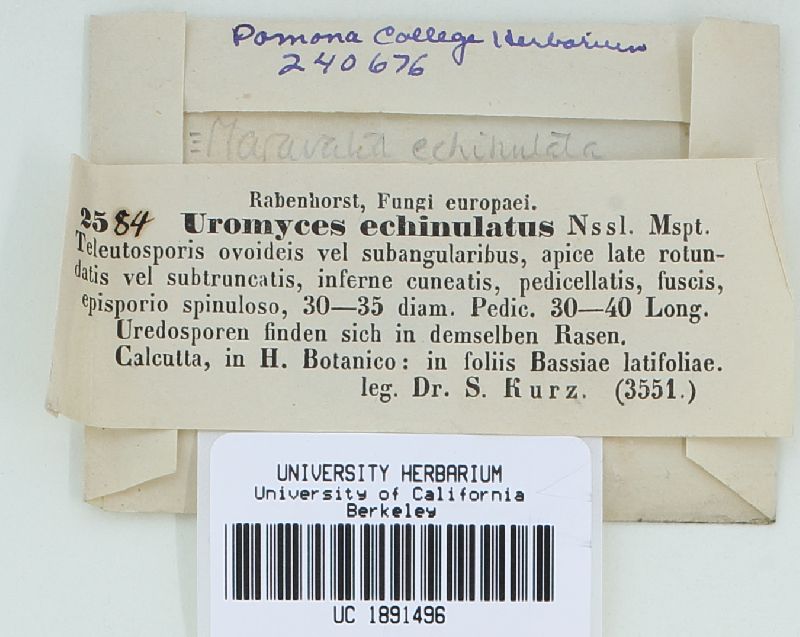 Pomona College Herbarium
240676
≡ Maravalia echinulata
Rabenhorst, Fungi europaei.
2584 Uromyces echinulatus Nssl. Mspt.
Teleutosporis ovoideis vel subangularibus, apice late rotun-
datis vel subtruncatis, inferne cuneatis, pedicellatis, fuscis,
episporio spinuloso, 30—35 diam. Pedic. 30—40 Long.
Uredosporen finden sich in demselben Rasen.
Calcutta, in H. Botanico: in foliis Bassiae latifoliae.
leg. Dr. S. Kurz. (3551.)
UNIVERSITY HERBARIUM
University of California
Berkeley
UC 1891496